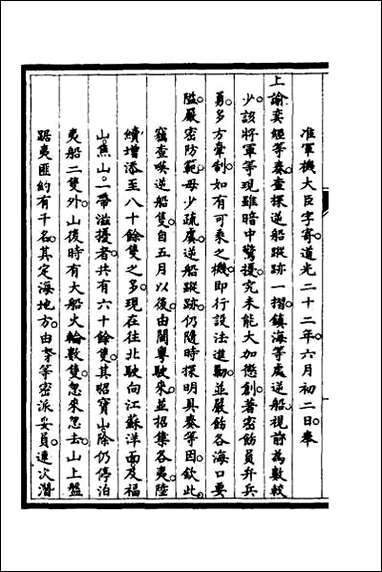 准軍機大臣字寄道光二十二年六月初二日奉
上諭奕經等奏查探逆船蹤跡一摺鎮海等處逆船視前為數較
少該將軍等現雖暗中驚擾究未能大加懲創著密飭員弁兵
勇多方牽制如有可乘之機即行設法進勦並嚴飭各海口要
隘嚴密防範毋少疏虞逆船蹤跡仍隨時探明具奏等因欽此
竊查嘆逆船隻自五月以後由閩粵駛來並招集各夷陸
續增添至八十餘隻之多現在往北駛向江蘇洋面及福
山焦山一帶滋擾者共有六十餘隻其昭寶山除仍停泊
夷船二隻外山後時有大船火輪數隻忽來忽去山上盤
踞夷匪約有千名其定海地方由等密派妥員連次潛